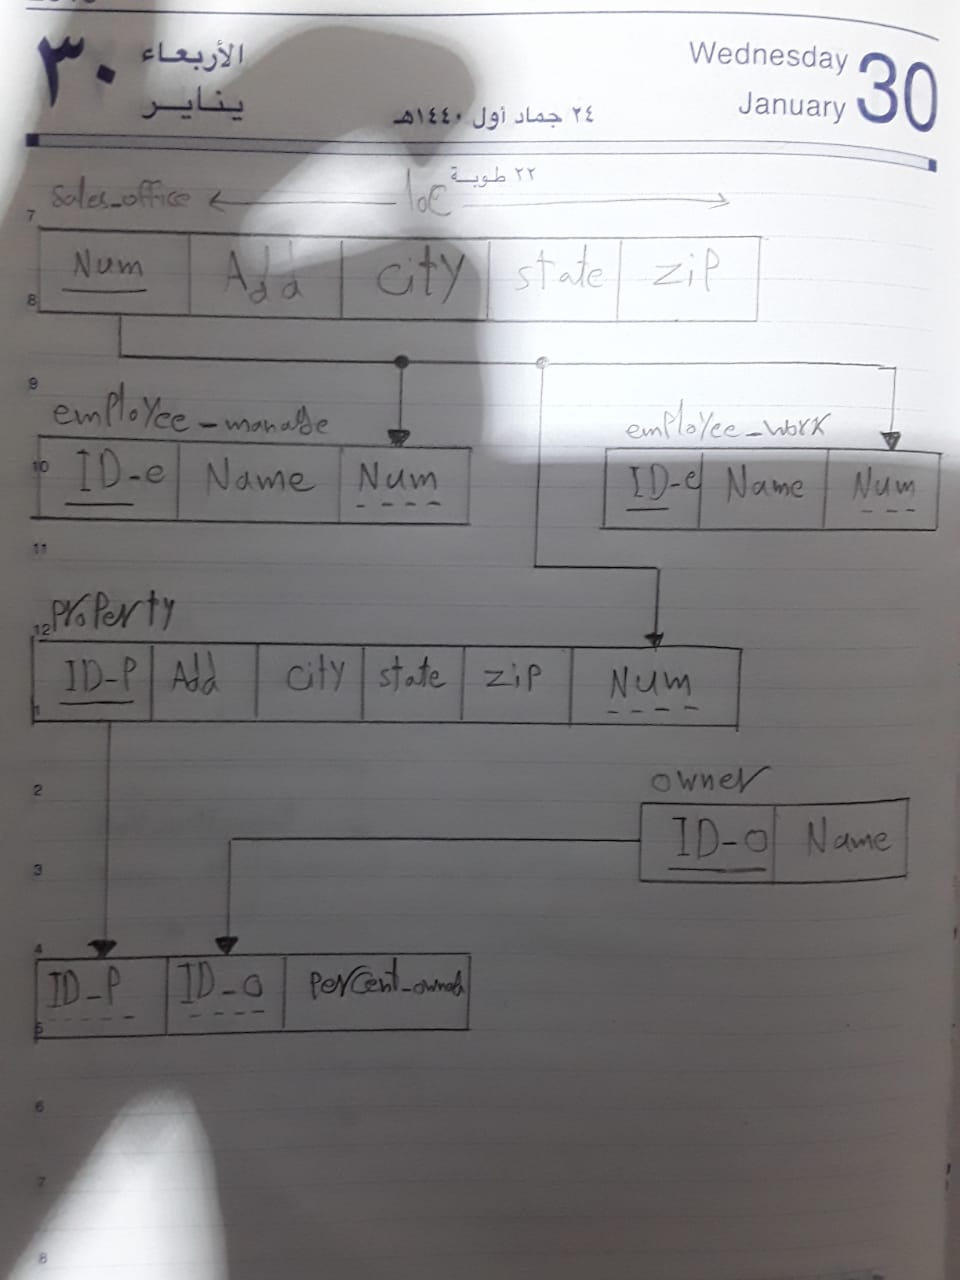 ٣٠ الأربعاء
يناير
٢٤ جماد أول ١٤٤٠هـ
Wednesday 30
January
٢٢ طوبة
sales_office loc
7
Num Add city state zip
8
9
employee_manage employee_work
10 ID-e Name Num ID-e Name Num
11
12 property
ID-P Add city state zip Num
1
2 owner
ID-o Name
3
4
ID-P ID-o
5
6
7
8